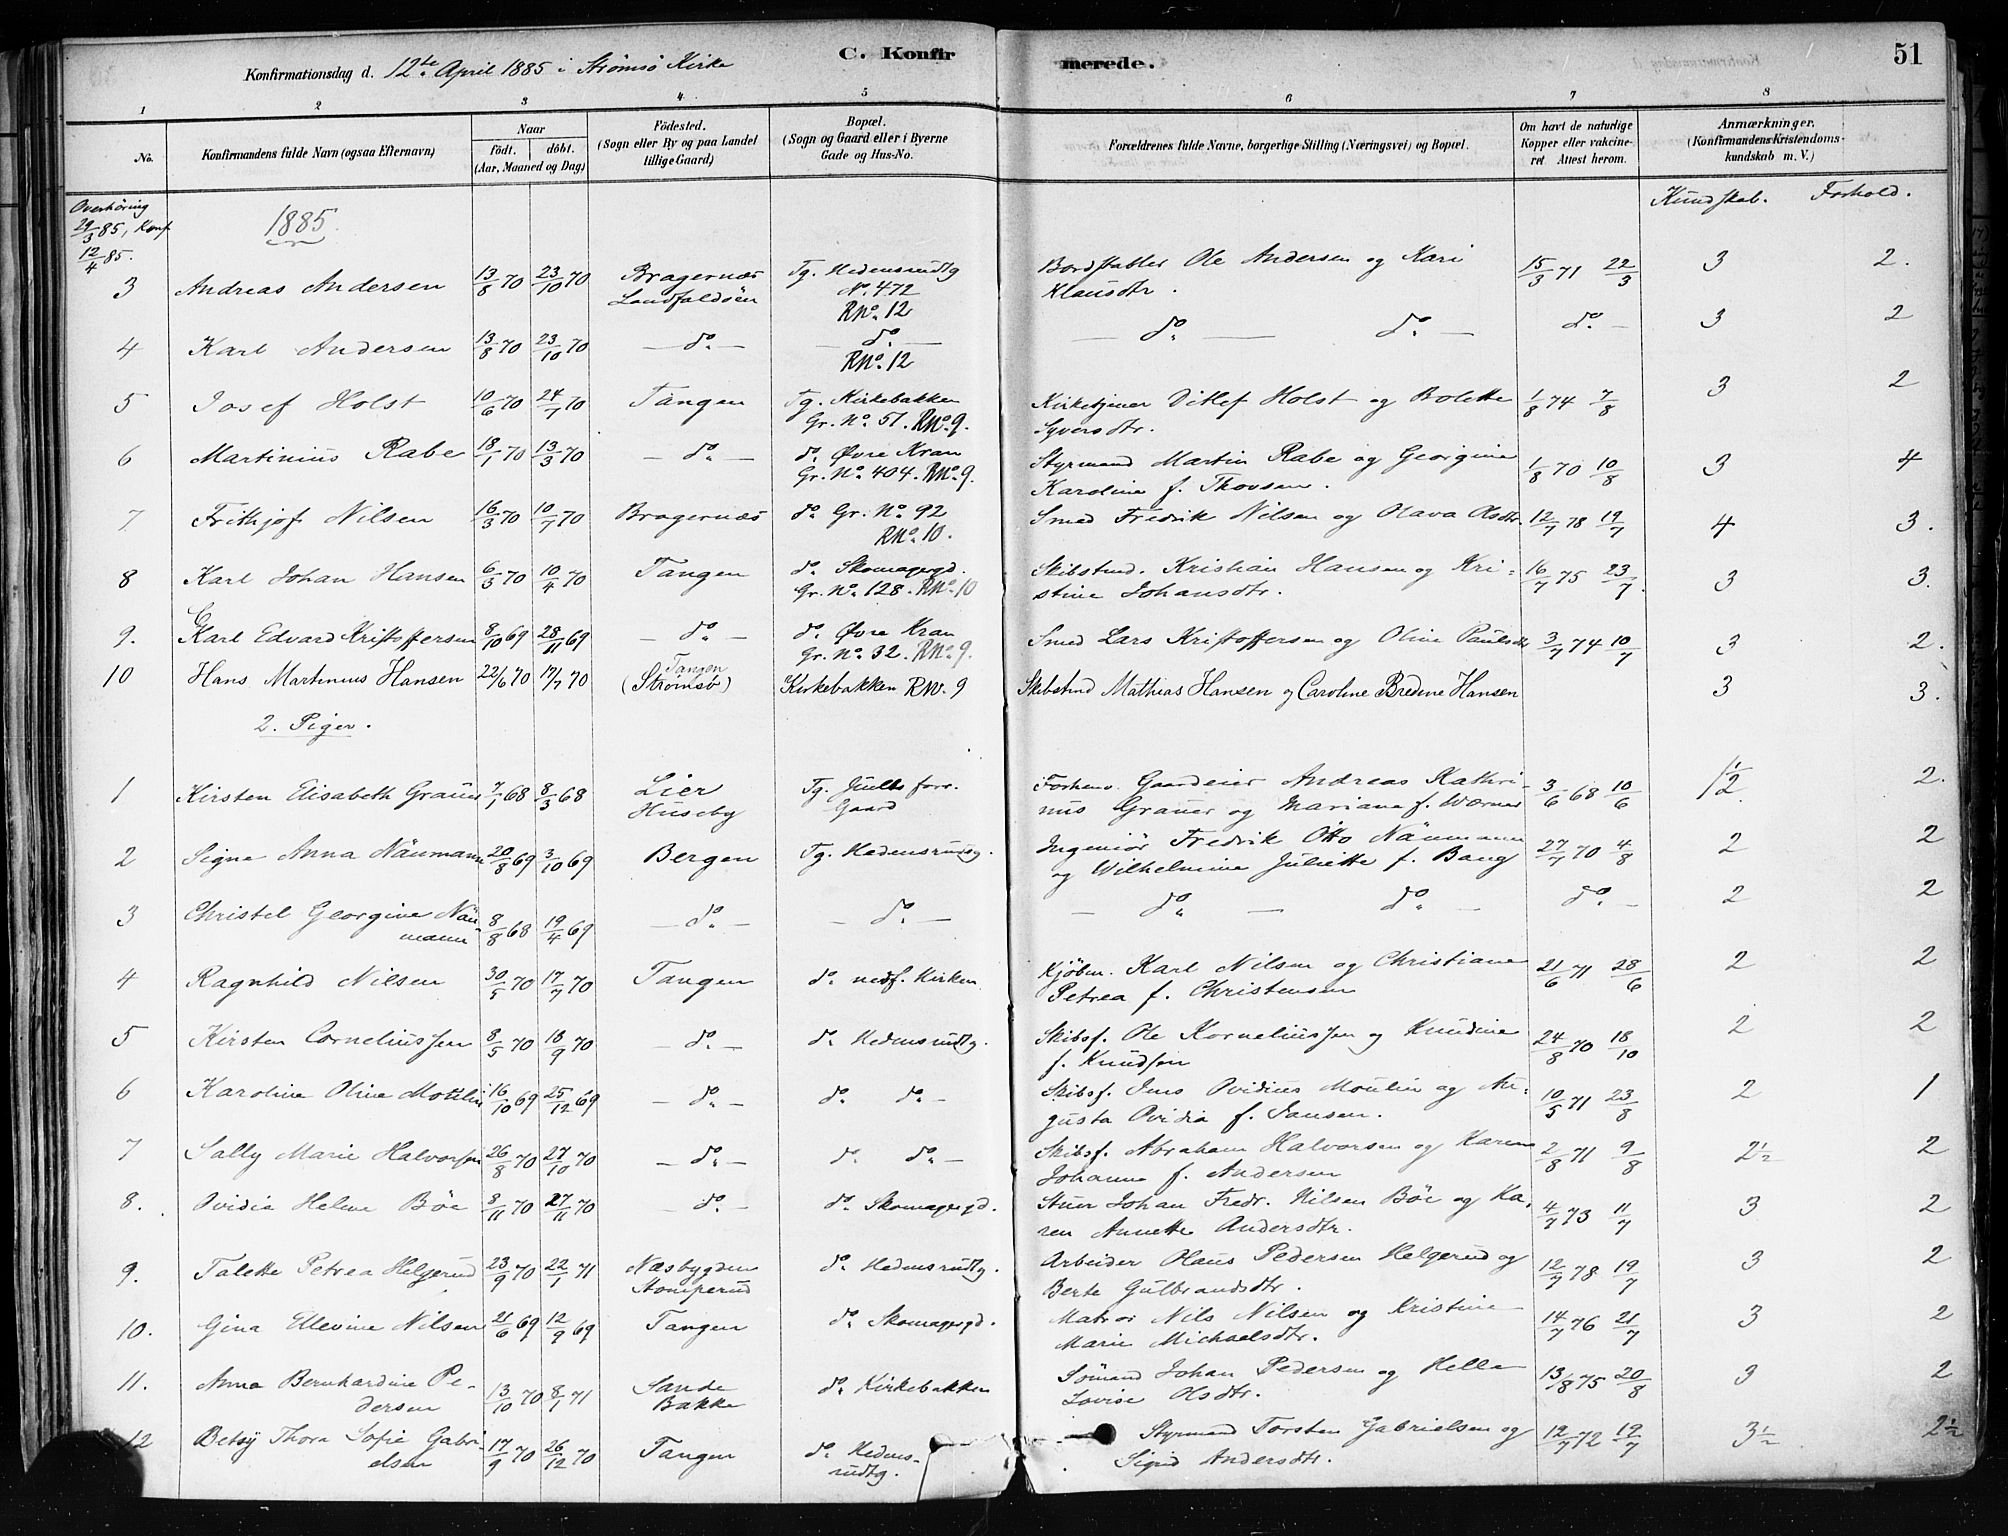 C. Konfirmerede. 51
Konfirmationsdag d. 12te April 1885 i Strømsø Kirke
1 2 3 4 5 6 7 8
No. Konfirmandens fulde Navn (ogsaa Efternavn) Naar født. døbt. (Aar, Maaned og Dag) Födested. (Sogn eller By og paa Landet tillige Gaard) Bopæl. (Sogn og Gaard eller i Byerne Gade og Hus-No. Forældrenes fulde Navne, borgerlige Stilling (Næringsvei) og Bopæl. Om havt de naturlige Kopper eller vakcineret Attest herom. Anmærkninger. (Konfirmandens Kristendomskundskab m. V.)
Kundskab. Forhold.
Overhöring 29/3 85, Konf 12/4 85.
1885.
3 Andreas Andersen 13/8 70 23/10 70 Bragernæs Landfaldsøen Tg. Hedensrudtg No. 472 RNo. 12 Bordstabler Ole Andersen og Kari Klausdtr. 15/3 71 22/3 3 2.
4 Karl Andersen 13/8 70 23/10 70 — do. — — do. — RNo. 12 — do. — do. — do. — 3 2
5 Josef Holst 10/6 70 24/7 70 Tangen Tg. Kirkebakken Gr. No. 51. RNo. 9. Kirketjener Ditlef Holst og Bolette Syversdtr. 1/8 74 7/8 3 2
6 Martinius Rabe 18/1 70 13/3 70 — do. — do. Øvre Kran Gr. No. 404. RNo. 9. Styrmand Martin Rabe og Georgine Karoline f. Thovsen. 1/8 70 10/8 3 4
7 Frithjof Nilsen 16/3 70 10/7 70 Bragernæs do. Gr. No. 92 RNo. 10. Smed Fredrik Nilsen og Olava Olsdtr. 12/7 78 19/7 4 3.
8 Karl Johan Hansen 6/3 70 10/4 70 Tangen do. Skomagergd. Gr. No. 128. RNo. 10 Skibstmd. Kristian Hansen og Kristine Johansdtr. 16/7 75 23/7. 3 3.
9. Karl Edvard Kristoffersen 8/10 69 28/11 69 — do. — do. Øvre Kran Gr. No. 32. RNo. 9. Smed Lars Kristoffersen og Oline Paulsdtr 3/7 74 10/7 3 2.
10 Hans Martinius Hansen 22/6 70 17/7 70 Tangen (Strømsø) Kirkebakken RNo. 9 Skibstmd Mathias Hansen og Caroline Bredine Hansen 3 3.
2. Piger.
1 Kirsten Elisabeth Grauer 7/1 68 8/3 68 Lier Huseby Tg. Juells forr. Gaard Forhenv. Gaardeier Andreas Kathrinus Grauer og Mariane f. Wærner 3/6 68 10/6 1 1/2 2.
2 Signe Anna Näumann 20/8 69 3/10 69 Bergen Tg. Hedensrudtg. Ingeniör Fredrik Otto Näumann og Wilhelmine Juliette f. Bang 27/7 70 4/8 2 2
3 Christel Georgine Näumann 8/8 68 19/4 69 — do. — — do. — — do. — do. — do. — 2 2
4 Ragnhild Nilsen 30/5 70 17/7 70 Tangen do. nedf. Kirken Kjøbm. Karl Nilsen og Christiane Petrea f. Christensen 21/6 71 28/6 2 2
5 Kirsten Corneliussen 8/5 70 18/9 70 — do. — do. Hedensrudtg. Skibsf. Ole Korneliussen og Knudine f. Knudsen 24/8 70 18/10 2 2
6 Karoline Oline 16/10 69 25/12 69 — do. — do. do. — Skibsf. Jens Ovidius og Augusta Ovidia f. Jansen. 10/5 71 23/8 2 1
7 Sally Marie Halvorsen 26/8 70 27/10 70 — do. — do. do. — Skibsf. Abraham Halvorsen og Karen Johanne f. Andersen 2/8 71 9/8 2 1/2 2
8. Ovidia Helene Böe 8/11 70 27/11 70 — do. — do. Skomagergd. Johan Fredr. Nilsen Böe og Karen Annette Andersdtr. 4/7 73 11/7 3 2
9. Talette Petrea Helgerud 23/9 70 22/1 71 Næsbygden Stomperud do. Hedensrudtg. Arbeider Olaus Pedersen Helgerud og Berte Gulbrandsdtr. 12/7 78 19/7 3 2
10. Gina Ellevine Nilsen 21/6 69 12/9 69 Tangen do. Skomagergd. Matros Nils Nilsen og Kristine Marie Michaelsdtr. 14/7 76 21/7 3 2
11. Anna Bernhardine Pedersen 13/10 70 8/1 71 Sande Bakke do. Kirkebakken Sömand Johan Pedersen og Helle Lovise Olsdtr. 13/8 75 20/8 3 2
12 Betsÿ Thora Sofie Gabrielsen 17/9 70 26/12 70 Tangen do. Hedensrudtg. Styrmand Torsten Gabrielsen og Sigrid Andersdtr. 12/7 72 19/7 3 1/2 2 1/2